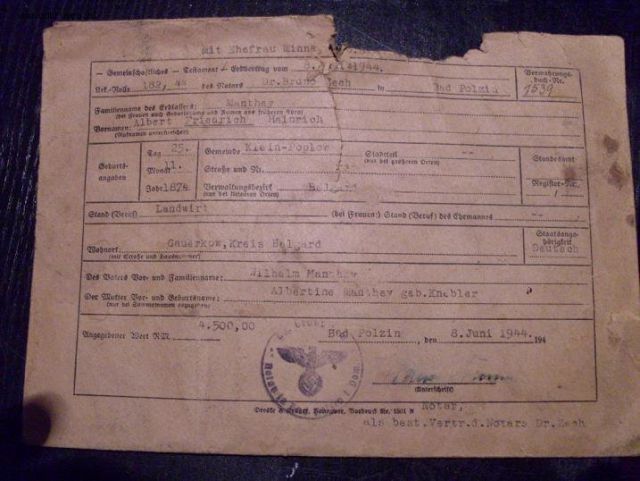 mit Ehefrau Minna,
Gemeinschaftliches — Testament — Erbvertrag vom 8. 1944.
Verwahrungs-
buch-Nr.
Urk.-Rolle 182,44 des Notars Dr. Bruno Zech in Bad Polzin
7539
Familienname des Erblassers: Manthey
(bei Frauen auch Geburtsname und Namen aus früheren Ehen)
Vornamen: Albert Friedrich Heinrich
(Rufnamen unterstreichen)
Geburts-
angaben
Tag 25.
Monat 11.
Jahr 1874
Gemeinde Klein-Poplow
Straße und Nr.
Verwaltungsbezirk Belgard
Stadtteil
(nur bei größeren Orten)
Standesamt
--
Register-Nr.
Stand (Beruf) Landwirt (bei Frauen:) Stand (Beruf) des Ehemannes --
Wohnort Gauerkow, Kreis Belgard
(mit Straße und Hausnummer)
Staatsange-
hörigkeit
Deutsch
Des Vaters Vor- und Familienname: Wilhelm Manthey
Der Mutter Vor- und Geburtsname: Albertine Manthey geb. Knabler
Angegebener Wert RM 4.500,00 Bad Polzin, den 8. Juni 1944. 194
(Unterschrift)
Notar,
als best. Vertr. d. Notars Dr. Zech